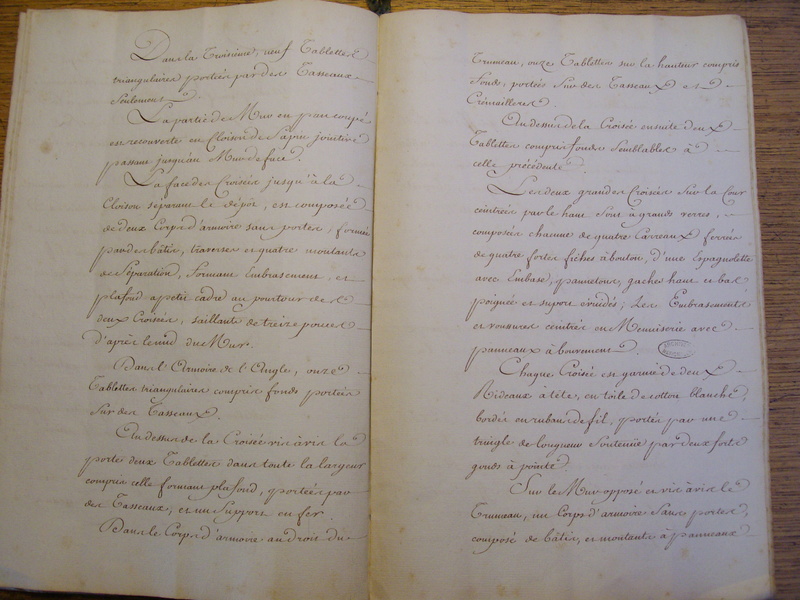 Dans la Troisieme, neuf Tablettes
triangulaires portées par des Tasseaux
seulement.
La partie de Mur en pan coupé
est recouverte en Cloison de Sapin jointive
passant jusqu'au Mur de face.
La face des Croisées jusqu'à la
Cloison séparant le dépôt, est composée
de deux Corps d'armoire sans portes, formés
par des bâtis, traverses et quatre montants
de Séparation, formant Embrasement et
plafond à petit cadre au pourtour des
deux Croisées, saillants de treize pouces
d'après le nud du Mur.
Dans l'Armoire de l'Angle, onze
Tablettes triangulaires compris fonds portées
Sur des Tasseaux.
Au dessus de la Croisée vis à vis la
porte deux Tablettes dans toute la largeur
compris celle formant plafond, portées par
des Tasseaux, et un Support en fer.
Dans le Corps d'armoire au droit du
Trumeau, onze Tablettes sur la hauteur compris
fonds, portées Sur des Tasseaux et
Crémailleres.
Au dessus de la Croisée ensuite deux
Tablettes compris fonds semblables à
celle précédente.
Les deux grandes Croisées Sur la Cour
ceintrées par le haut sont à grands verres,
composées chacune de quatre Carreaux ferrés
de quatre fortes fiches à bouton, d'une Espagnolette
avec Embase, pannetons, gaches haut et bas
poignée et suport évuidés; Les Embrasements
et voussures ceintrés en Menuiserie avec
panneaux à bouvement.
Chaque Croisée est garnie de deux
Rideaux à tête, en toile de cotton blanche,
bordés en ruban de fil, portés par une
tringle de longueur soutenüe par deux forts
gonds à pointe.
Sur le Mur opposé et vis à vis le
Trumeau, un Corps d'armoire Sans portes,
composé de bâtis, et montants à panneaux